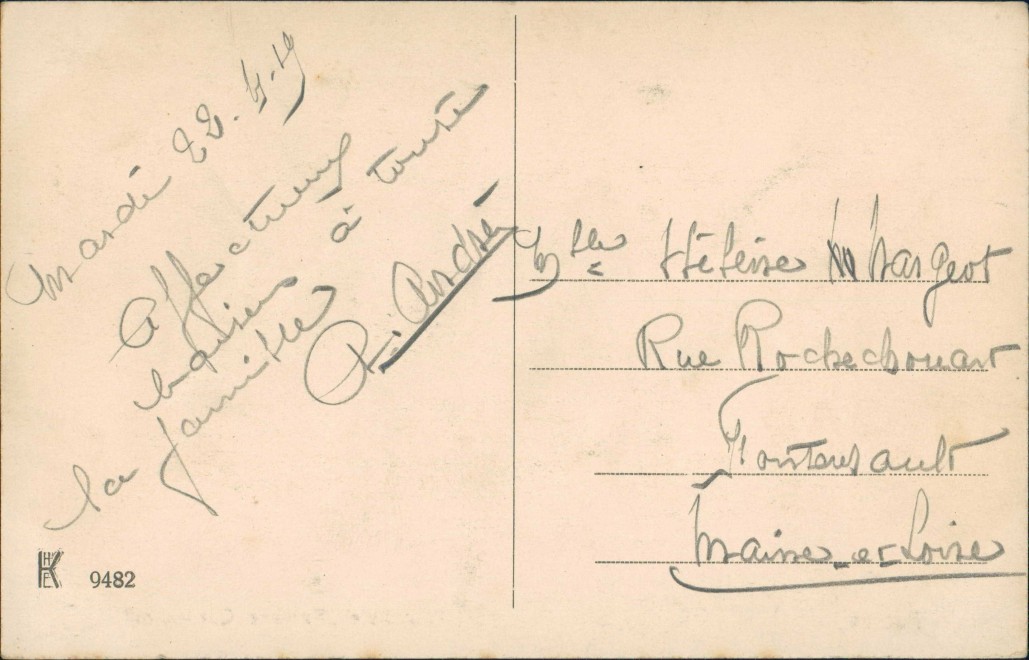 Mardi 22.4.19
Affectueux
baisers à toute
la famille
P. André
Mlle Hélène Margeot
Rue Rochechouart
Fontevrault
Maine-et-Loire
HK
FE
9482